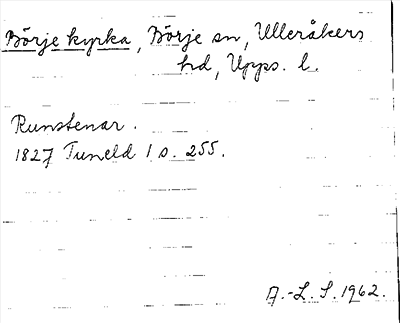 Börje kyrka, Börje sn, Ulleråkers
hd, Upps. l.
Runstenar.
1827 Tuneld 1 s. 255.
A.-L. S. 1962.